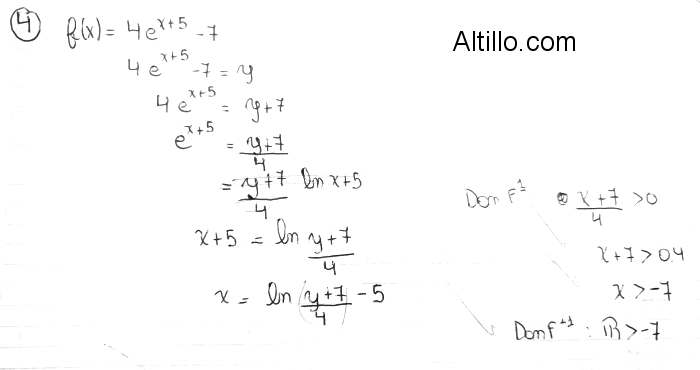 ④ f(x) = 4e^(x+5) - 7
Altillo.com
4e^(x+5) - 7 = y
4e^(x+5) = y+7
e^(x+5) = (y+7)/4
= (y+7)/4 ln x+5
x+5 = ln (y+7)/4
x = ln (y+7)/4 - 5
Dom F^1 (x+7)/4 >0
x+7 > 0.4
x > -7
Dom F^-1 : ℝ > -7